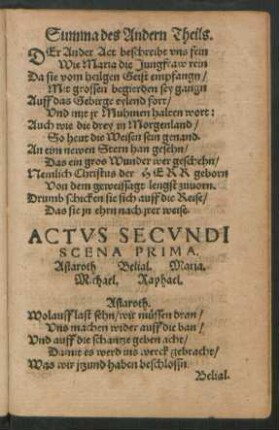 Summa des Andern Theils.
DEr Ander Act beschreibt vns fein
Wie Maria die Jungfraw rein
Da sie vom heilgen Geist empfangn/
Mit grossen begierden sey gangn
Auff das Gebirge eylend fort/
Vnd mit jr Muhmen halten wort:
Auch wie die drey in Morgenland/
So heut die Weisen sein genand.
An eim newen Stern han gesehn/
Das ein gros Wunder wer geschehn/
Nemlich Christus der HERR geborn
Von dem geweissagt lengst zuuorn.
Drumb schicken sie sich auff die Reise/
Das sie jn ehrn nach jrer weise.
ACTVS SECVNDI
SCENA PRIMA.
Astaroth Belial. Maria.
Michael. Raphael.
Astaroth.
Wolauff last sehn/wir müssen dran/
Vns machen wider auff die ban/
Vnd auff die schantze geben acht/
Damit es werd ins werck gebracht/
Was wir jtzund haben beschlossn.
Belial.